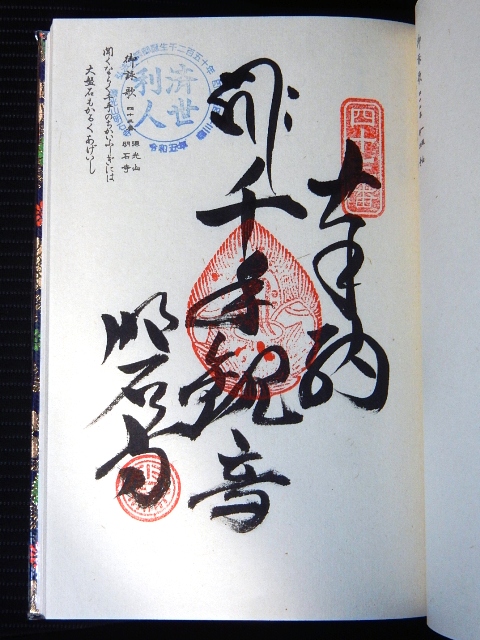 四十三番
奉納
千手観音
明石寺
誕生千二百五十年
済世
利人
令和五年
御詠歌 四十三番 源光山 明石寺
聞くならく千手のちかいふしぎには
大盤石もかろくあげいし